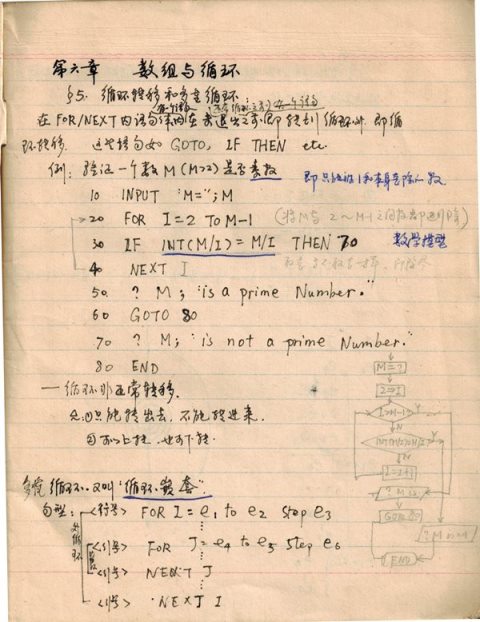 第六章 数组与循环
§5. 循环转移和多重循环
在 FOR/NEXT 内语句体内在未退出之前,即转到循环外,即循
环转移. 这些语句如 GOTO, IF THEN etc.
例: 验证一个数 M(M>2)是否素数 即只能被1和本身整除的数.
10 INPUT "M="; M
20 FOR I=2 TO M-1
30 IF INT(M/I)=M/I THEN 70 数学模型
40 NEXT I
50. ? M; "is a prime Number."
60 GOTO 80
70 ? M; "is not a prime Number."
80 END
一 循环非正常转移.
只能转出去,不能转进来.
可以上转,也可下转.
M=?
2⇒I
I>M-1?
N
INT(M/I)=M/I
N
END
多重循环. 又叫"循环嵌套"
句型: <行号> FOR I=e1 to e2 step e3
外循环
<行号> FOR J=e4 to e5 step e6
<行号> NEXT J
<行号> NEXT I